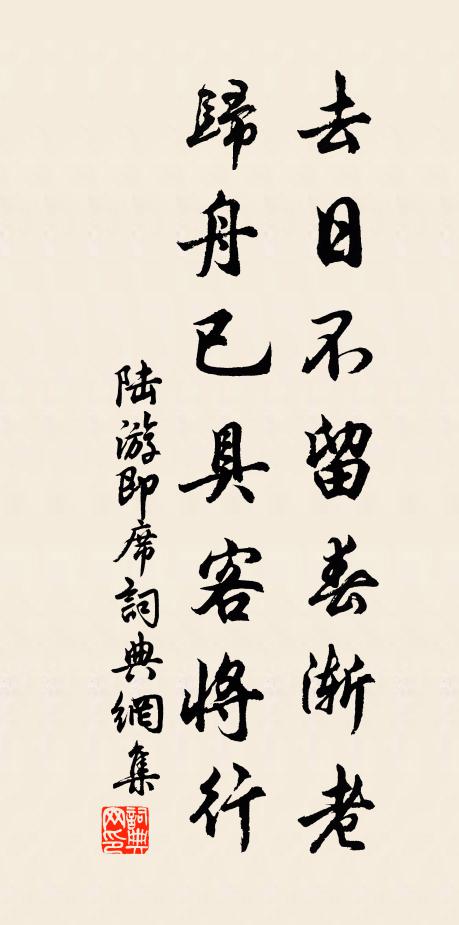 去日不留春漸老
歸舟已具客將行
陸游即席詞典網集
詞典網印